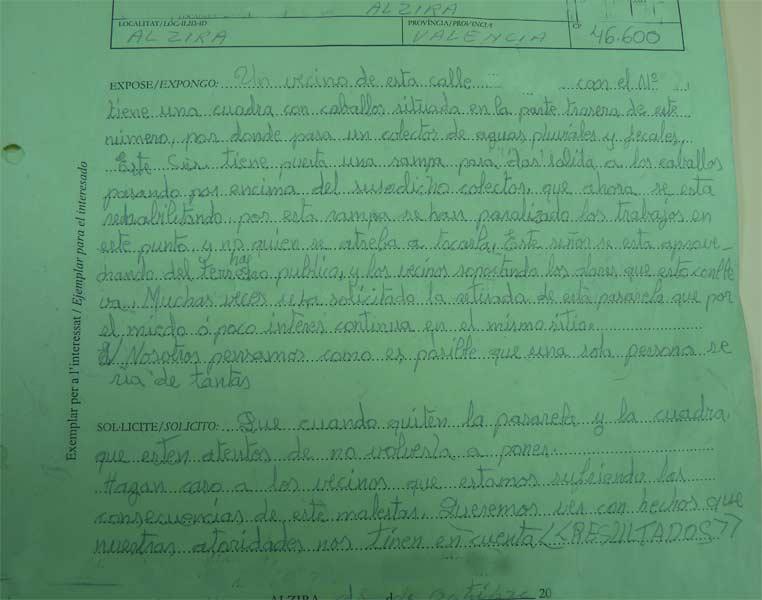 ALZIRA
LOCALITAT/LOCALIDAD PROVÍNCIA/PROVINCIA CP
ALZIRA VALENCIA 46.600
EXPOSE/EXPONGO: Un vecino de esta calle con el Nº
tiene una cuadra con caballos situada en la parte trasera de este
número, por donde pasa un colector de aguas pluviales y fecales,
Este Sr. tiene puesta una rampa para "dar" salida a los caballos
pasando por encima del susodicho colector, que ahora se esta
rehabilitando por esta rampa se han paralizado los trabajos en
este punto y no hay quien se atreba a tocarla, Este señor se esta aprove-
chando del terreno publico, y los vecinos soportando los olores que esto conlle
va. Muchas veces se ha solicitado la retirada de esta pasarela que por
el miedo ó poco interes continua en el mismo sitio.
Nosotros pensamos como es posible que una sola persona se
ria de tantas
SOL·LICITE/SOLICITO: Que cuando quiten la pasarela y la cuadra,
que esten atentos de no volverla a poner.
Hagan caso a los vecinos que estamos sufriendo las
consecuencias de este malestar. Queremos ver con hechos que
nuestras atoridades nos tinen en cuenta <<RESULTADOS>>
ALZIRA, de 20
Exemplar per a l'interessat / Ejemplar para el interesado